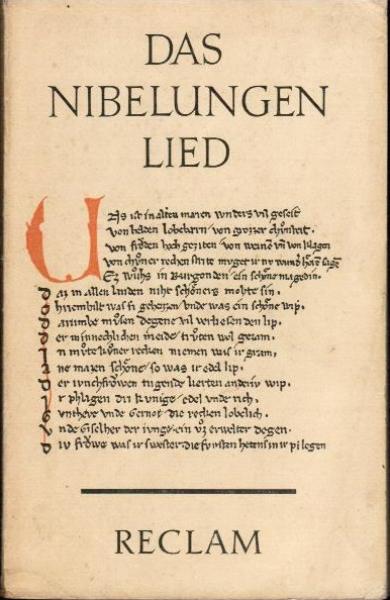 DAS
NIBELUNGEN
LIED
Uns ist in alten mæren wnders vil geseit
von heleden lobebærn von grozzer chůnheit.
von frŏden hoch geziten von weinen vn̄ von klagen
von chůner recken strite mvget ir nv wund' hŏren sagē
Ez wůhs in Burgonden ein schŏne magedin.
daz in allen landen niht schŏners mohte sin.
chriemhilt was si geheizzen vnde was ein schŏne wip.
darumbe můsen degene vil verliesen den lip.
der minneclichen meide trůten wol gezam.
in mŭte kůner recken niemen was ir gram.
ane mazen schŏne so was ir edel lip.
der ivnchfrŏwen tugende zierten anderiv wip.
ir phlagen dri kunige edel vnde rich.
Gvnthere vnde Gernot die recken lobelich.
vnde Giselher der ivnge ein vz erwelter degen.
div frŏwe was ir swester die fvrsten hetens in ir pflegen
RECLAM